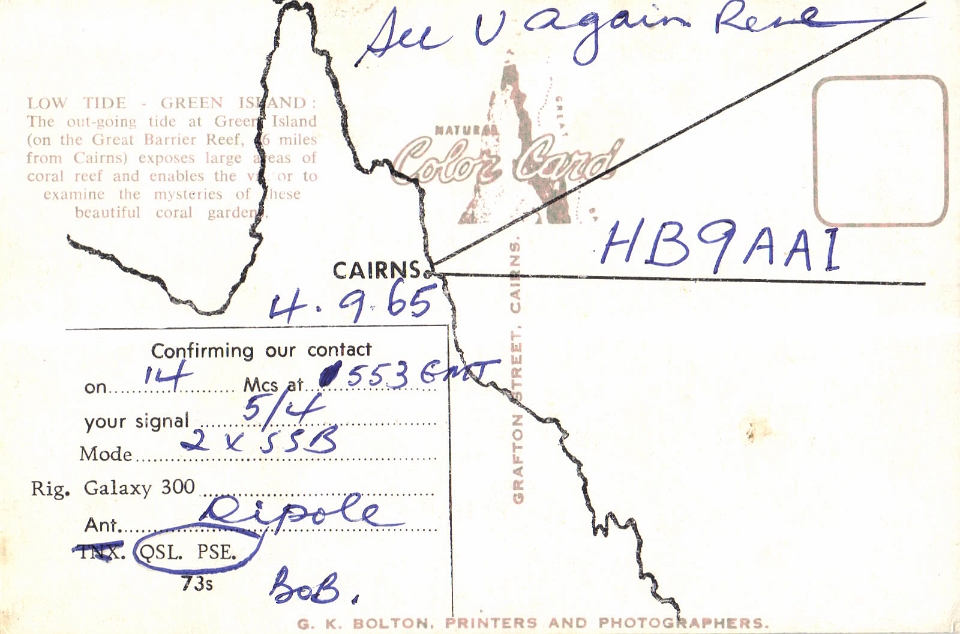 See U again Rene
LOW TIDE - GREEN ISLAND:
The out-going tide at Green Island
(on the Great Barrier Reef, 16 miles
from Cairns) exposes large areas of
coral reef and enables the visitor to
examine the mysteries of these
beautiful coral gardens.
NATURAL
Color Card
GREAT
HB9AAI
CAIRNS
4.9.65
GRAFTON STREET, CAIRNS.
Confirming our contact
on 14 Mcs at 0553 GMT
your signal 5/4
Mode 2 x SSB
Rig. Galaxy 300
Ant. Dipole
TNX. QSL. PSE.
73s BOB.
G. K. BOLTON, PRINTERS AND PHOTOGRAPHERS.